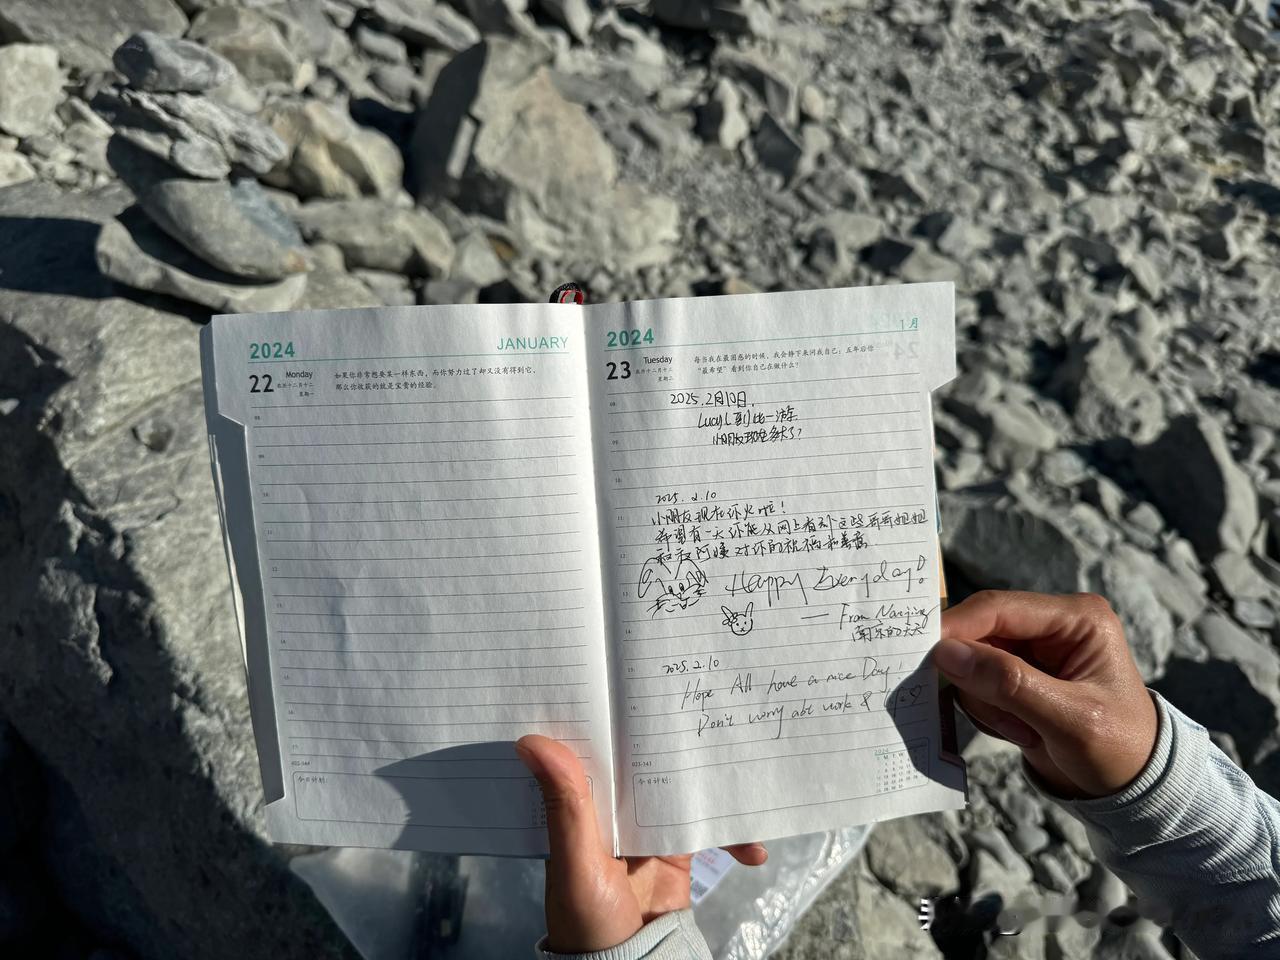 2024 JANUARY
22 Monday
农历十二月十二
星期一
如果你非常想要某一样东西，而你努力过了却又没有得到它，
那么你收获的就是宝贵的经验。
08
09
10
11
12
13
14
15
16
17
022-344
今日计划：
2024 1月
23 Tuesday
农历十二月十三
星期二
每当我在最困惑的时候，我会静下来问我自己：五年后你
“最希望”看到你自己在做什么？
08
2025.2月10日.
Lucy L 到此一游
09
小朋友现在多大了？
10
2025.2.10
11
小朋友现在你火啦！
希望有一天你能从网上看到这些哥哥姐姐
12
和叔叔阿姨对你的祝福和善意
13
Happy Everyday!
—— From Nanjing
14
南京的天天
15
2025.2.10
Hope All have a nice Day!
16
Don't worry abt work &
17
023-343
今日计划：
2024